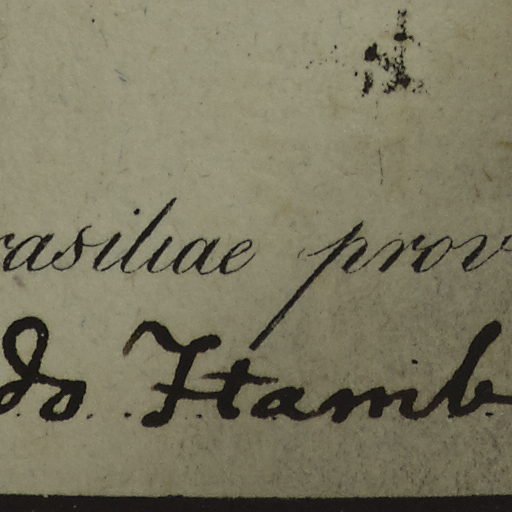 rasiliae prov
do Itamb